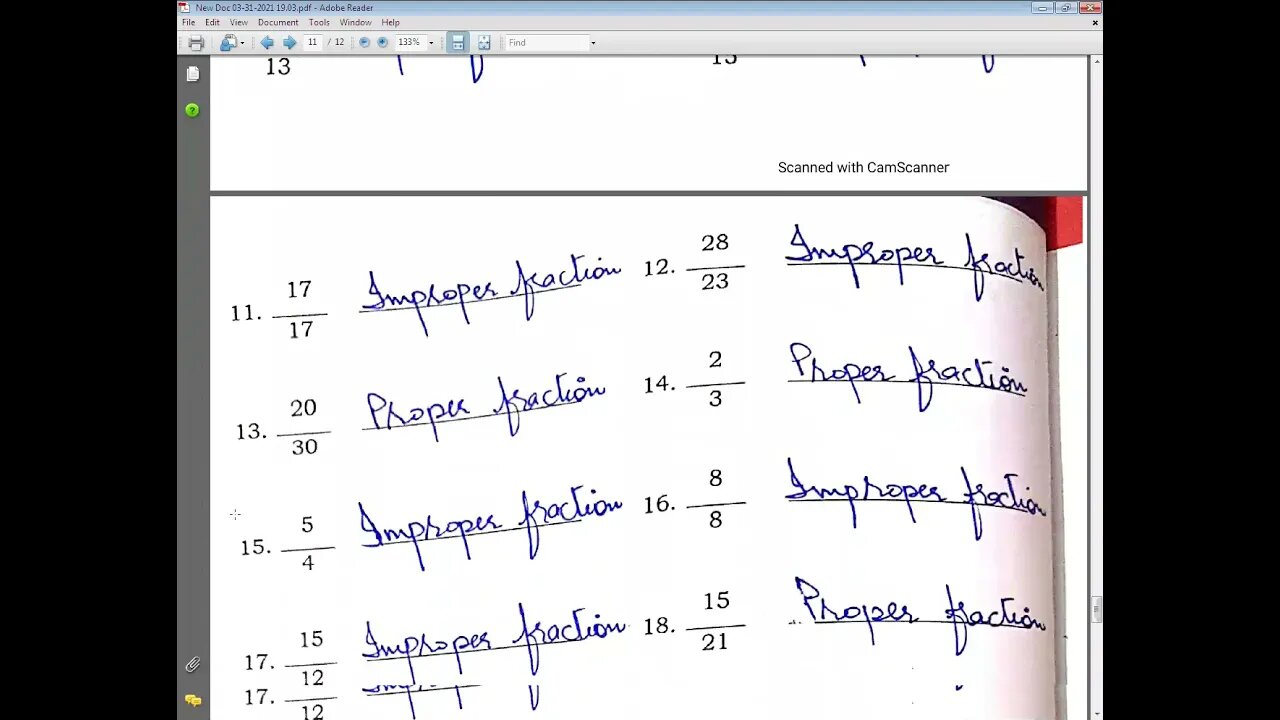 New Doc 03-31-2021 19.03.pdf - Adobe Reader
File Edit View Document Tools Window Help
11 / 12 133% Find
13 13
Scanned with CamScanner
11. 17/17 Improper fraction 12. 28/23 Improper fraction
13. 20/30 Proper fraction 14. 2/3 Proper fraction
15. 5/4 Improper fraction 16. 8/8 Improper fraction
17. 15/12 Improper fraction 18. 15/21 Proper fraction
17. 12